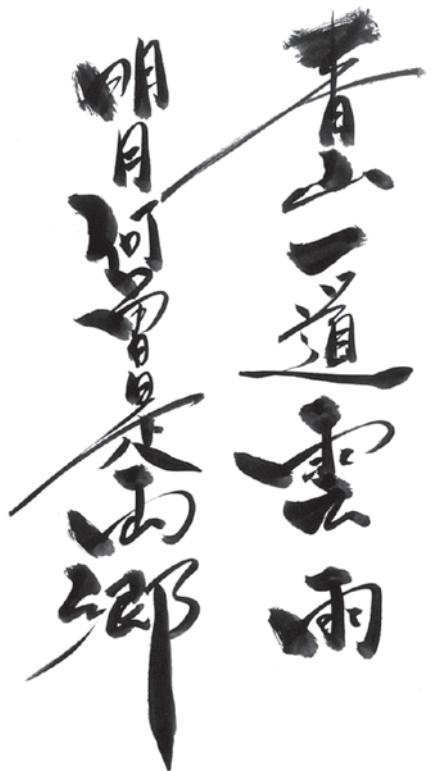 青山一道雲雨
明月何曾是両鄉